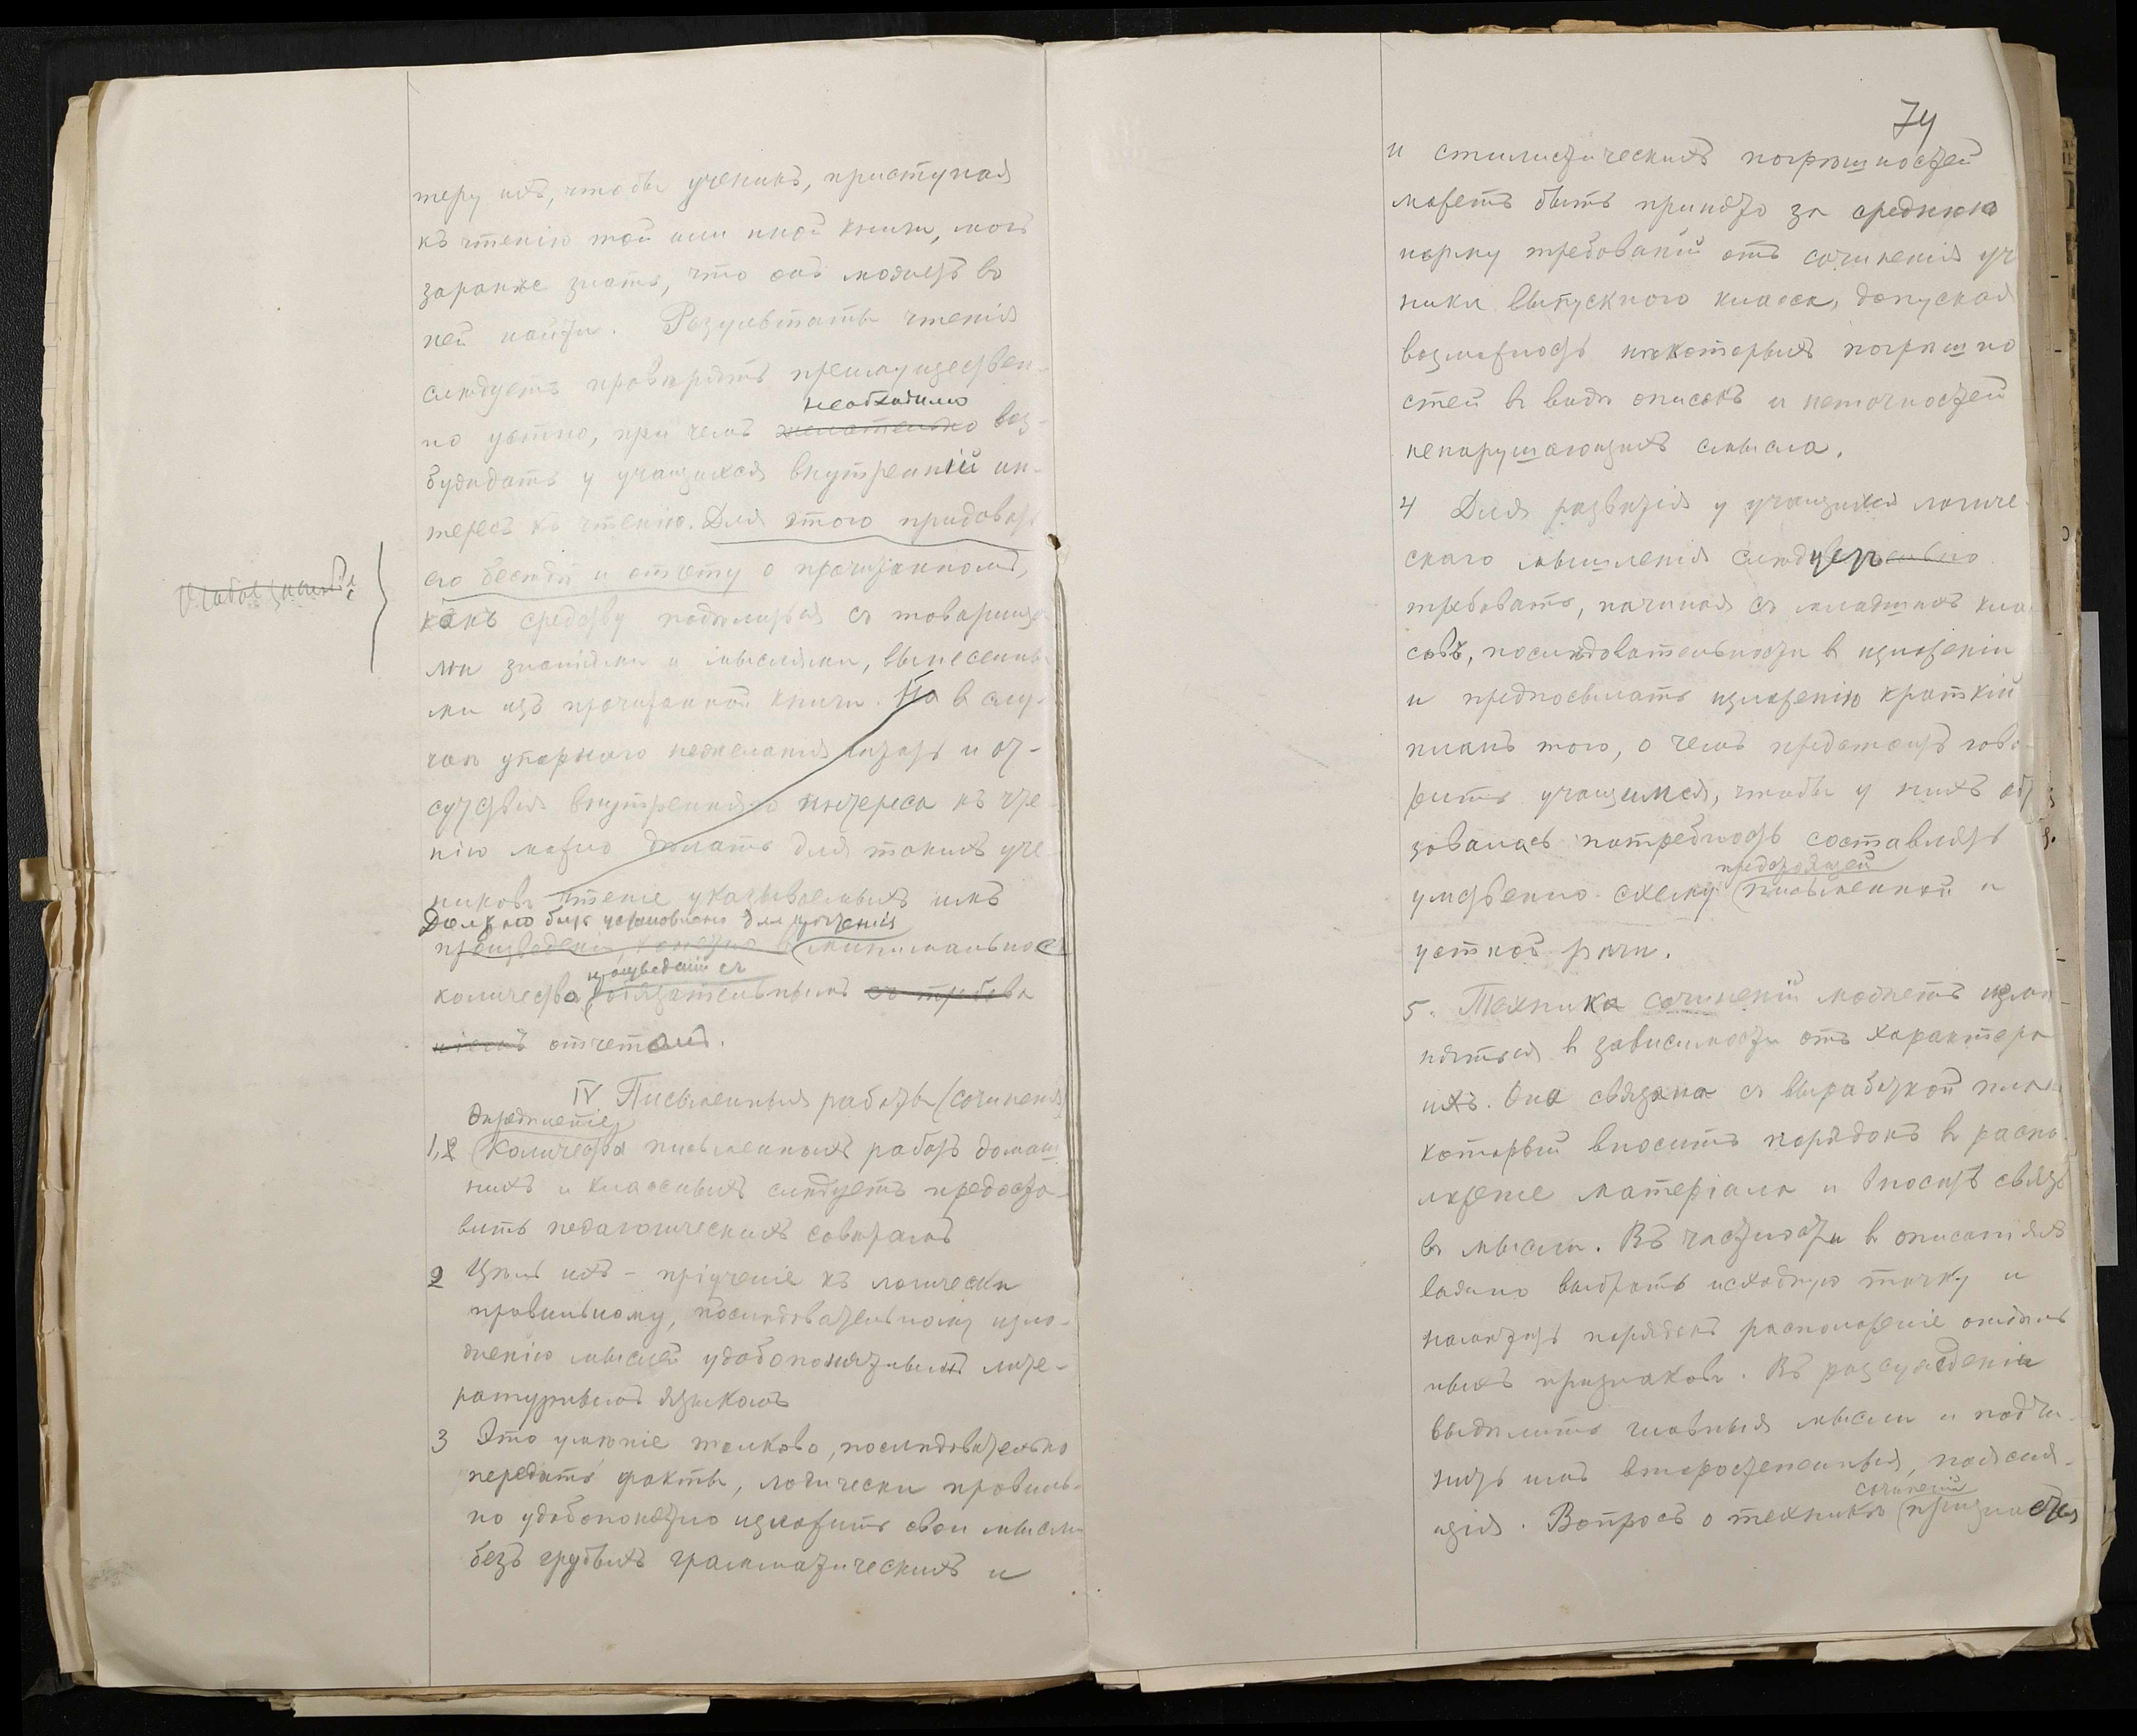 теру ихъ, чтобы ученикъ, приступая
къ чтенію той или иной книги, могъ
заранѣе знать, что онъ можетъ въ
ней найти. Результаты чтенія
слѣдуетъ провѣрять преимуществен-
необходимо
но устно, при чемъ желательно воз-
буждать у учащихся внутренній ин-
тересъ къ чтенію. Для этого придавать
его бесѣдѣ и отчету о прочитанномъ,
какъ средству подѣлиться съ товарища-
ми знаніями и мыслями, вынесенны-
ми изъ прочитанной книги. Но въ слу-
чаѣ упорнаго нежеланія читать и от-
сутствія внутренняго интереса къ чте-
нію можно дѣлать для такихъ уче-
никовъ чтеніе указываемыхъ имъ
Должно быть установлено для прочтенія
произведеній, конечно минимальное
произведеній съ
количество обязательнымъ съ требова
ніемъ отчетомъ.
IV Письменныя работы (сочиненія)
Опредѣленіе
1. Количества письменныхъ работъ домаш
нихъ и классныхъ слѣдуетъ предоста-
вить педагогическимъ совѣтамъ
2 Цѣль ихъ - пріученіе къ логически
правильному, послѣдовательному изло-
женію мыслей удобопонятнымъ лите-
ратурнымъ языкомъ
3 Это умѣніе толково, послѣдовательно
передать факты, логически правиль-
но удобопонятно изложить свои мысли
безъ грубыхъ грамматическихъ и
74
и стилистическихъ погрѣшностей
можетъ быть принято за среднюю
норму требованій отъ сочиненія уче
ника выпускного класса, допуская
возможность нѣкоторыхъ погрѣшно
стей въ видѣ описокъ и неточностей
ненарушающихъ смысла.
4 Для развитія у учащихся логиче-
скаго мышленія слѣдуетъ
требовать, начиная съ младшихъ клас
совъ, послѣдовательности въ изложеніи
и предпосылать изложенію краткій
планъ того, о чемъ предстоитъ гово-
рить учащимся, чтобы у нихъ обра
зовалась потребность составлять
предстоящей
умственно схему письменной и
устной рѣчи.
5. Техника сочиненій можетъ измѣ-
няться въ зависимости отъ характера
ихъ. Она связана съ выработкой плана
который вноситъ порядокъ въ распо-
ложеніе матеріала и вноситъ связь
въ мысли. Въ частности въ описаніяхъ
важно выбрать исходную точку и
намѣтить порядокъ расположенія отдѣль
ныхъ признаковъ. Въ разсужденіи
выдѣлить главныя мысли и подчи-
нить имъ второстепенныя, поясня-
сочиненій
ющія. Вопросъ о техникѣ признается